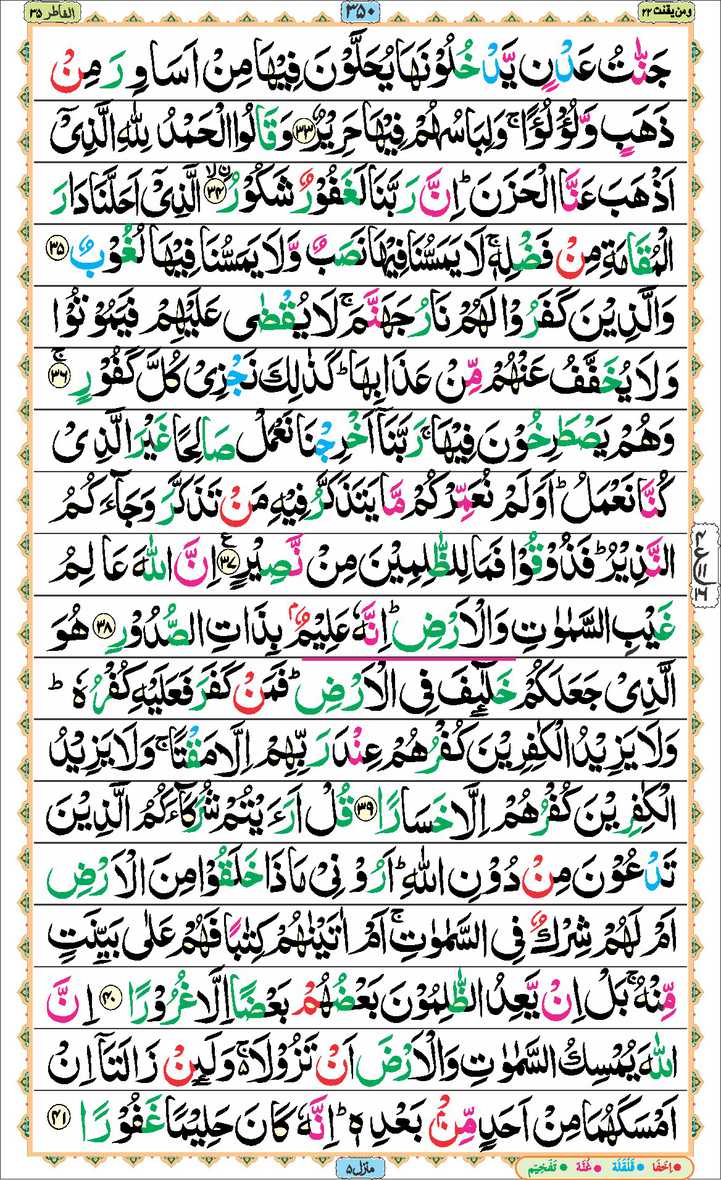 ومن یقنت ۲۲ ۳۵۰ الفاطر ۳۵
جَنّٰتُ عَدْنٍ یَّدْخُلُوْنَهَا یُحَلَّوْنَ فِیْهَا مِنْ اَسَاوِرَ مِنْ
ذَهَبٍ وَّلُؤْلُؤًا ۚ وَلِبَاسُهُمْ فِیْهَا حَرِیْرٌ ﴿۳۳﴾ وَقَالُوا الْحَمْدُ لِلّٰهِ الَّذِیْۤ
اَذْهَبَ عَنَّا الْحَزَنَ ؕ اِنَّ رَبَّنَا لَغَفُوْرٌ شَكُوْرُ ۙ﴿۳۴﴾ الَّذِیْۤ اَحَلَّنَا دَارَ
الْمُقَامَةِ مِنْ فَضْلِهٖ ۚ لَا یَمَسُّنَا فِیْهَا نَصَبٌ وَّلَا یَمَسُّنَا فِیْهَا لُغُوْبٌ ﴿۳۵﴾
وَالَّذِیْنَ كَفَرُوْا لَهُمْ نَارُ جَهَنَّمَ ۚ لَا یُقْضٰی عَلَیْهِمْ فَیَمُوْتُوْا
وَلَا یُخَفَّفُ عَنْهُمْ مِّنْ عَذَابِهَا ؕ كَذٰلِكَ نَجْزِیْ كُلَّ كَفُوْرٍ ۚ﴿۳۶﴾
وَهُمْ یَصْطَرِخُوْنَ فِیْهَا ۚ رَبَّنَاۤ اَخْرِجْنَا نَعْمَلْ صَالِحًا غَیْرَ الَّذِیْ
كُنَّا نَعْمَلُ ؕ اَوَلَمْ نُعَمِّرْكُمْ مَّا یَتَذَكَّرُ فِیْهِ مَنْ تَذَكَّرَ وَجَآءَكُمُ
النَّذِیْرُ ؕ فَذُوْقُوْا فَمَا لِلظّٰلِمِیْنَ مِنْ نَّصِیْرٍ ﴿۳۷﴾ اِنَّ اللّٰهَ عَالِمُ
غَیْبِ السَّمٰوٰتِ وَالْاَرْضِ ؕ اِنَّهٗ عَلِیْمٌۢ بِذَاتِ الصُّدُوْرِ ﴿۳۸﴾ هُوَ
الَّذِیْ جَعَلَكُمْ خَلٰٓئِفَ فِی الْاَرْضِ ؕ فَمَنْ كَفَرَ فَعَلَیْهِ كُفْرُهٗ ؕ
وَلَا یَزِیْدُ الْكٰفِرِیْنَ كُفْرُهُمْ عِنْدَ رَبِّهِمْ اِلَّا مَقْتًا ۚ وَلَا یَزِیْدُ
الْكٰفِرِیْنَ كُفْرُهُمْ اِلَّا خَسَارًا ﴿۳۹﴾ قُلْ اَرَءَیْتُمْ شُرَكَآءَكُمُ الَّذِیْنَ
تَدْعُوْنَ مِنْ دُوْنِ اللّٰهِ ؕ اَرُوْنِیْ مَاذَا خَلَقُوْا مِنَ الْاَرْضِ
اَمْ لَهُمْ شِرْكٌ فِی السَّمٰوٰتِ ۚ اَمْ اٰتَیْنٰهُمْ كِتٰبًا فَهُمْ عَلٰی بَیِّنَتٍ
مِّنْهُ ۚ بَلْ اِنْ یَّعِدُ الظّٰلِمُوْنَ بَعْضُهُمْ بَعْضًا اِلَّا غُرُوْرًا ﴿۴۰﴾ اِنَّ
اللّٰهَ یُمْسِكُ السَّمٰوٰتِ وَالْاَرْضَ اَنْ تَزُوْلَا ۚ۬ وَلَئِنْ زَالَتَاۤ اِنْ
اَمْسَكَهُمَا مِنْ اَحَدٍ مِّنْۢ بَعْدِهٖ ؕ اِنَّهٗ كَانَ حَلِیْمًا غَفُوْرًا ﴿۴۱﴾
منزل ۵
اِخفَا قَلْقَلَة غُنَّة تَفْخِیْم